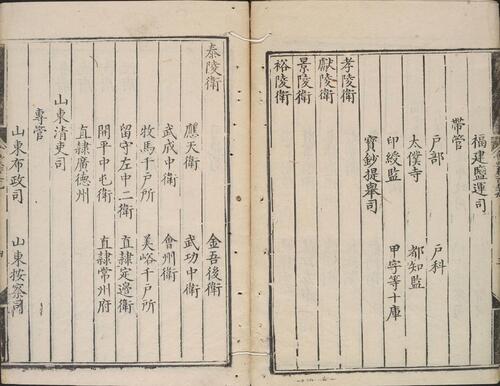 福建鹽運司
帶管
戶部 戶科
太僕寺 都知監
印綬監 甲字等十庫
寶鈔提舉司
孝陵衛
獻陵衛
景陵衛
裕陵衛
泰陵衛 金吾後衛
應天衛 武功中衛
武成中衛 會州衛
牧馬千戶所 美峪千戶所
留守左中二衛 直隸定邊衛
開平中屯衛 直隸常州府
直隸廣德州
山東清吏司
專管
山東布政司 山東按察司